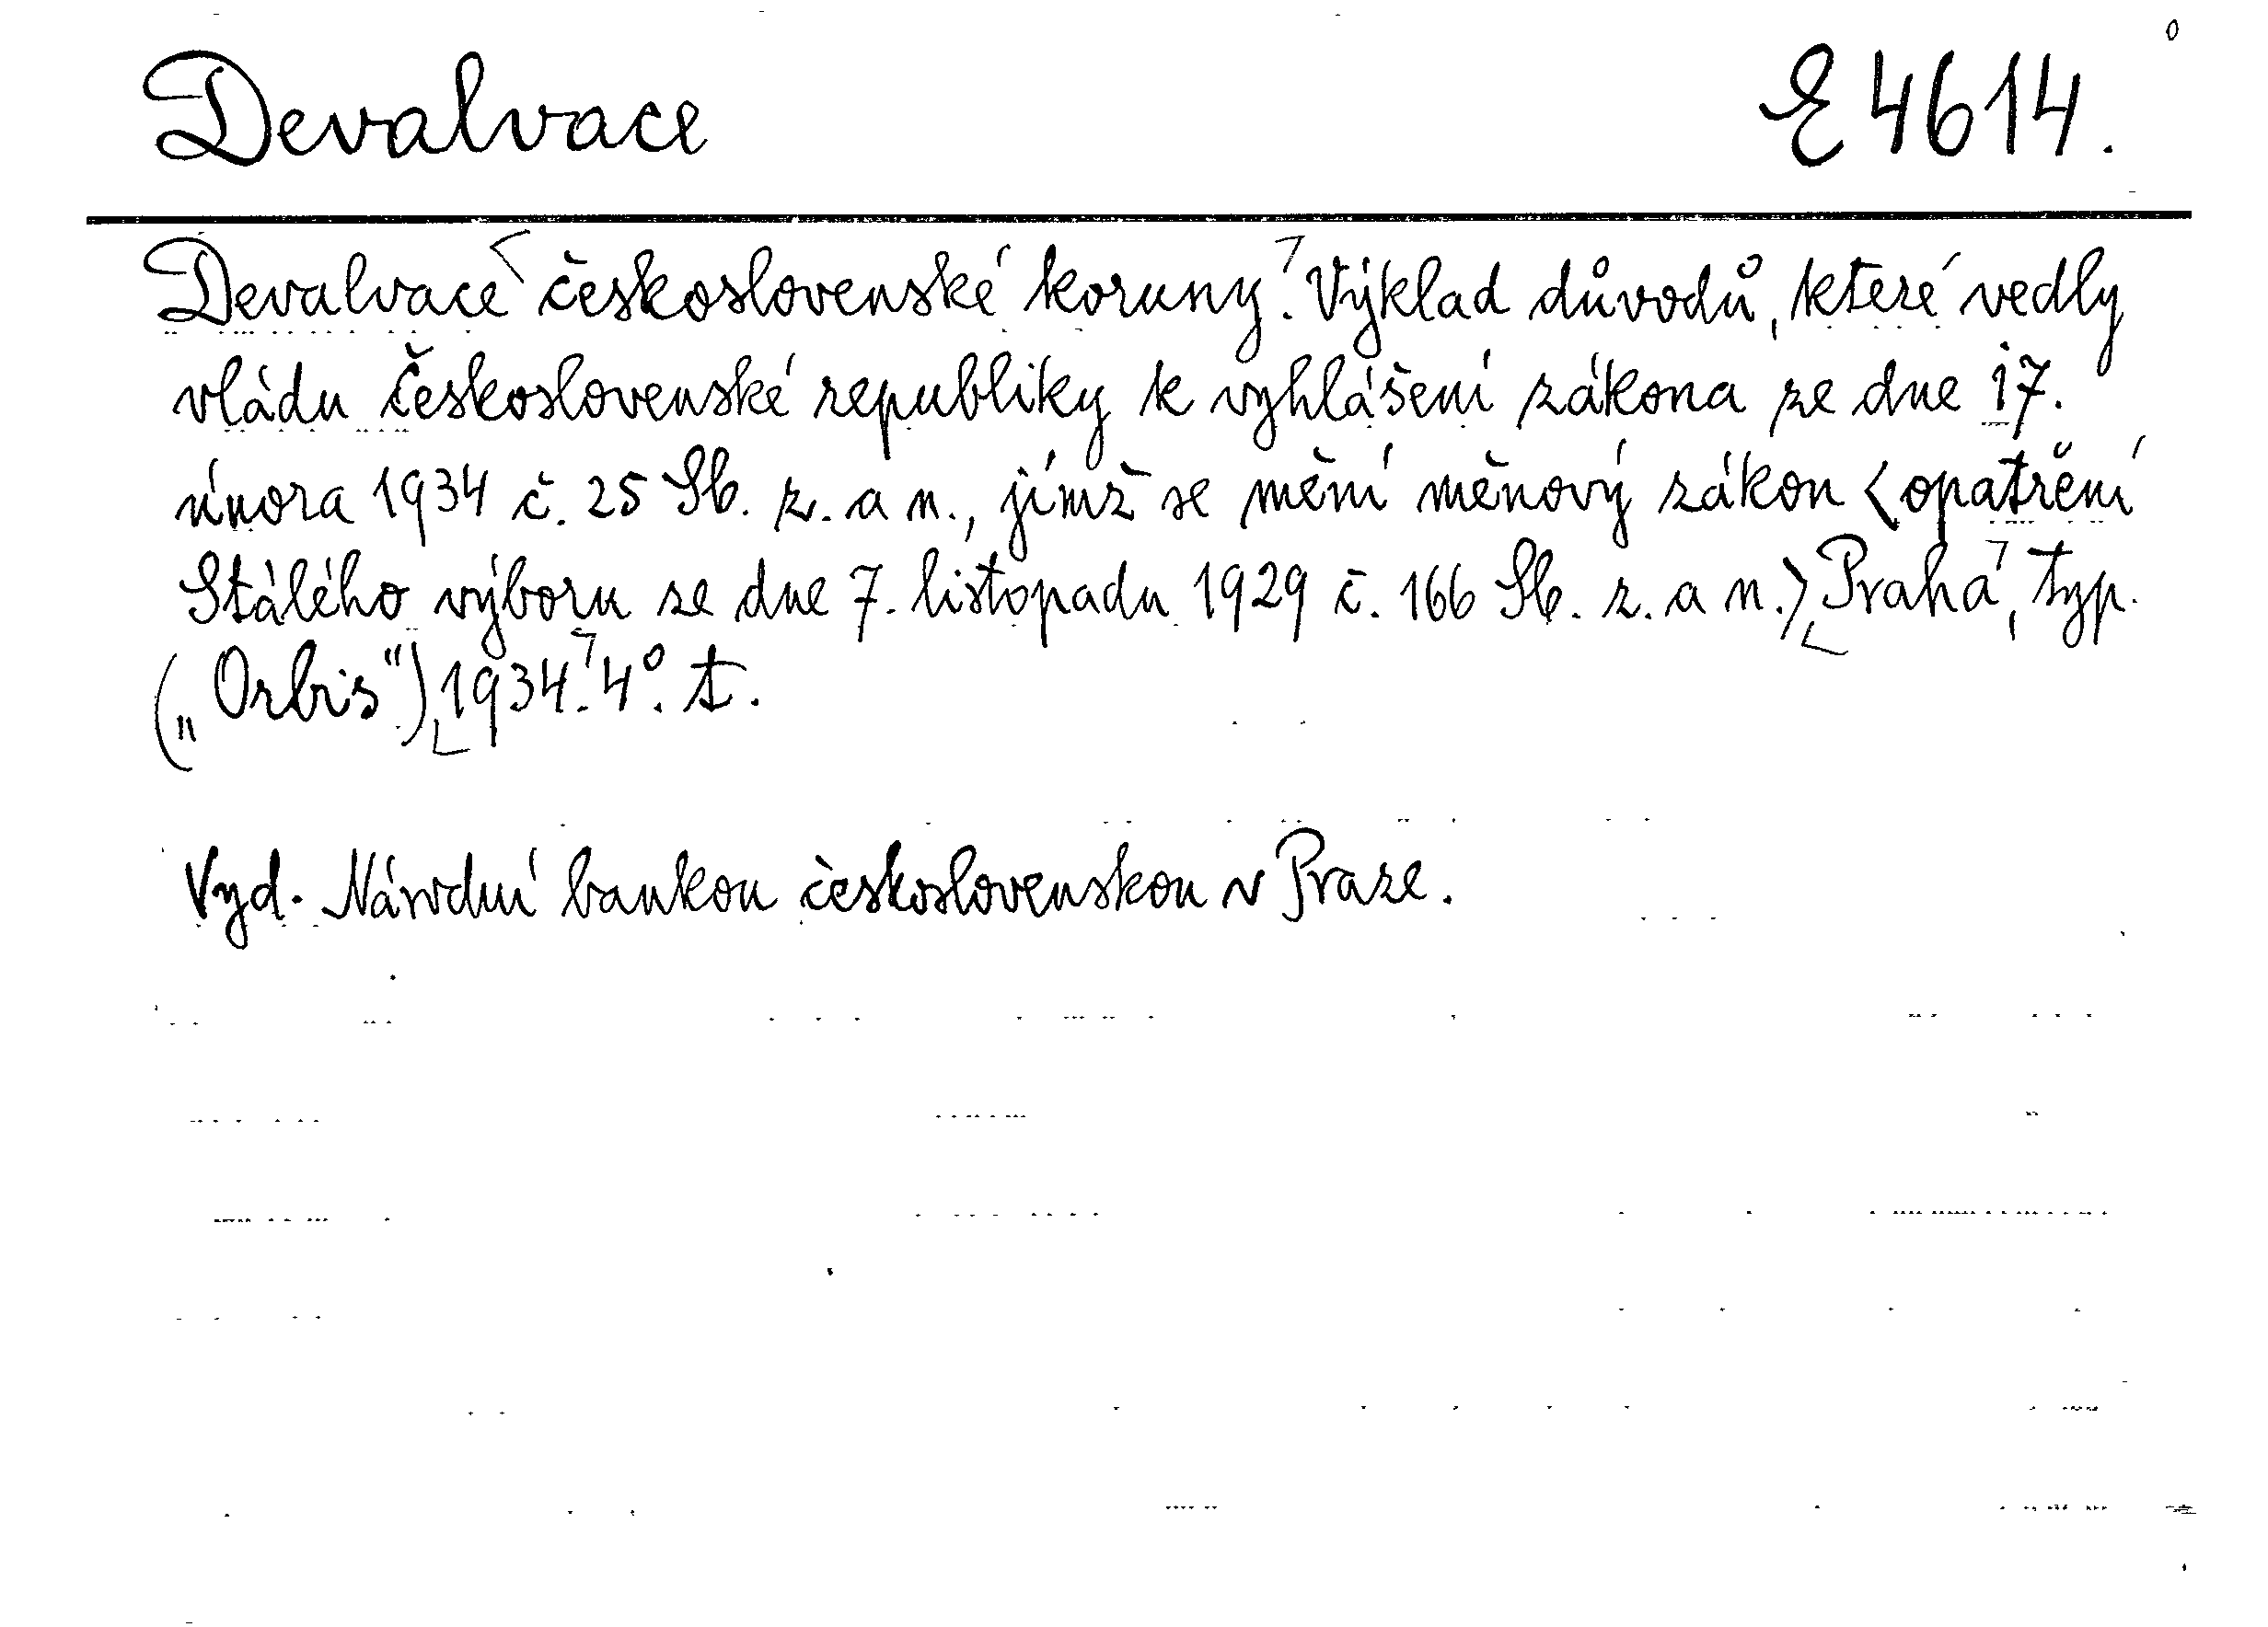 Devalvace E 4614.
Devalvace československé koruny. Výklad důvodů, které vedly
vládu Československé republiky k vyhlášení zákona ze dne 17.
února 1934 č. 25 Sb. z. a n., jímž se mění měnový zákon <opatření
Stálého výboru ze dne 7. listopadu 1929 č. 166 Sb. z. a n.> Praha, typ.
(„Orbis“) 1934. 4°. t.
Vyd. Národní bankou československou v Praze.